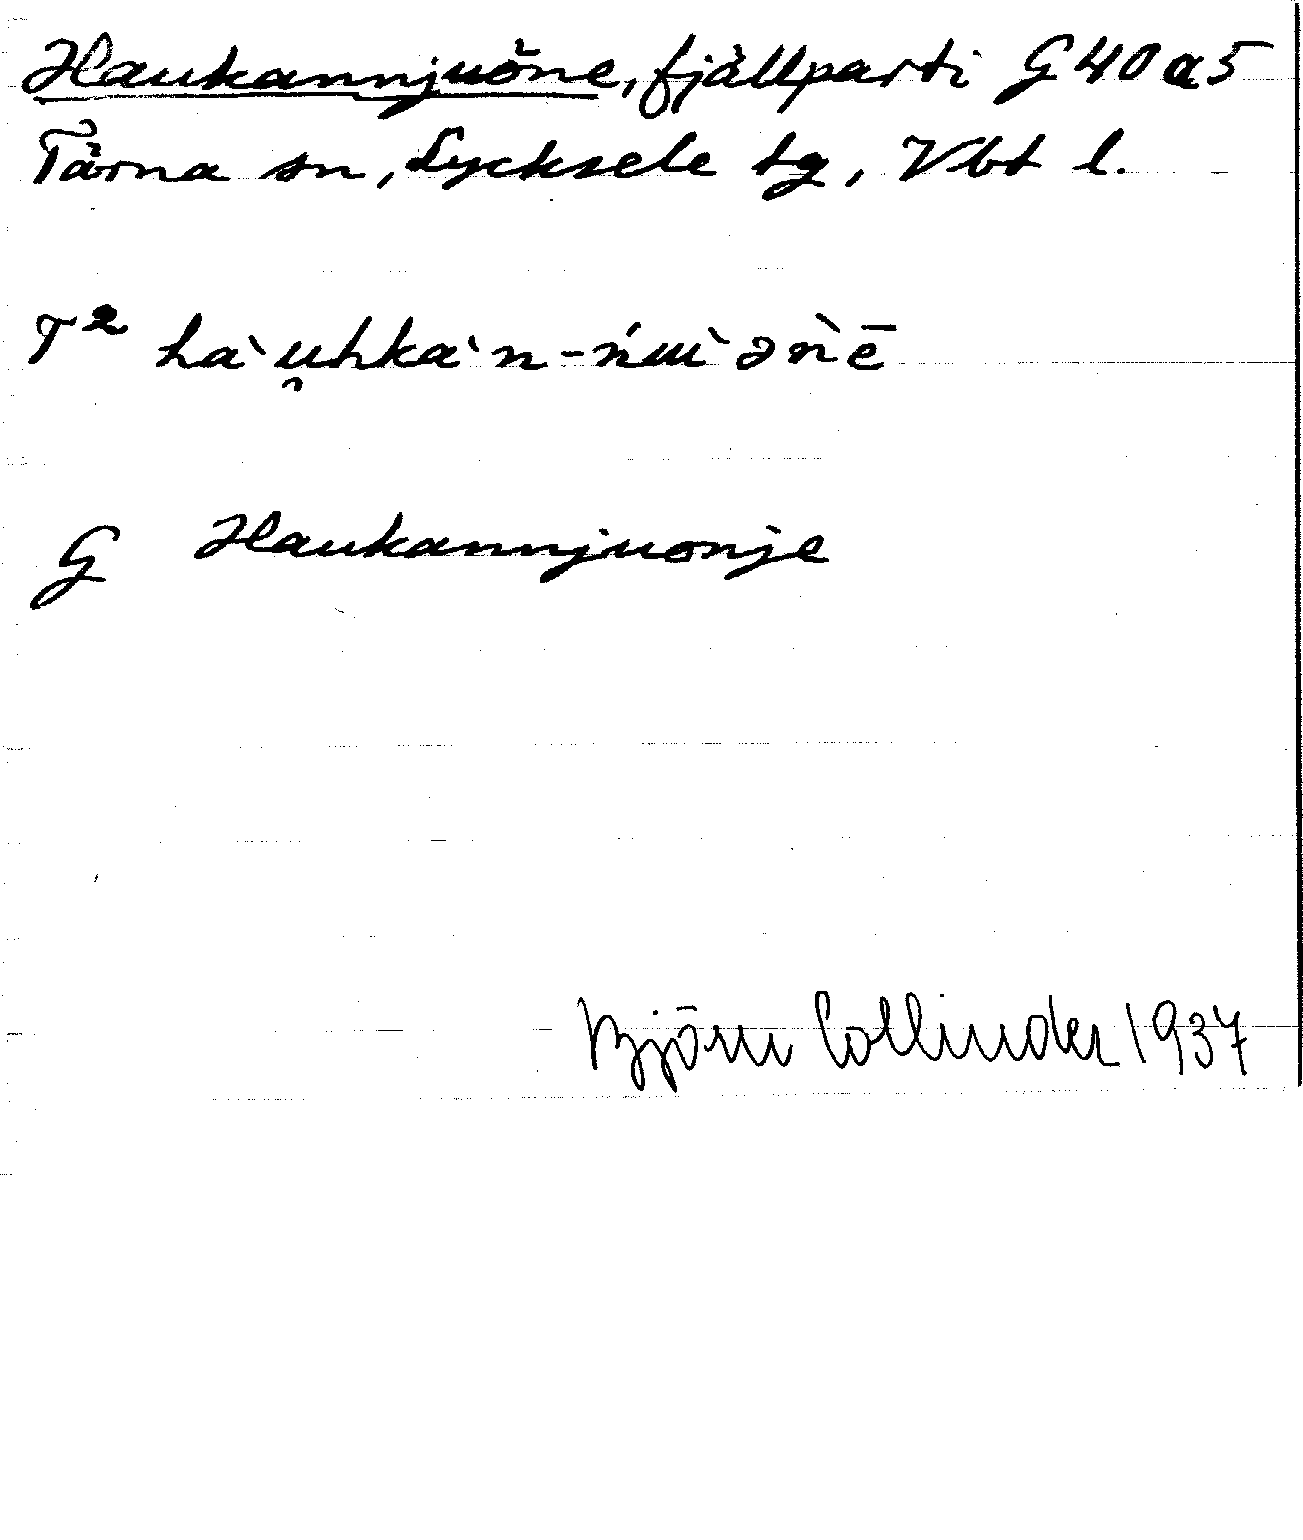 Haukannjuŏne, fjällparti G 40 a 5
Tärna sn, Lycksele tg, Vbt l.
T² ha`u̯hka`n-ńɯɯ`əǹē
G Haukannjuonje
Björn Collinder 1937